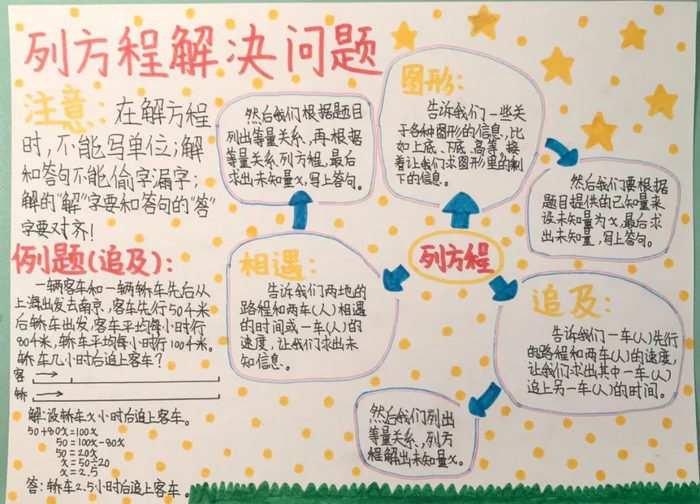 列方程解决问题
注意：在解方程
时，不能写单位；解
和答句不能偷字漏字；
解的“解”字要和答句的“答”
字要对齐！
例题(追及)：
一辆客车和一辆轿车先后从
上海出发去南京，客车先行50千米
后轿车出发，客车平均每小时行
80千米，轿车平均每小时行100千米。
轿车几小时后追上客车？
客
轿
解：设轿车x小时后追上客车。
50+80x=100x
50=100x-80x
50=20x
x=50÷20
x=2.5
答：轿车2.5小时后追上客车。
然后我们根据题目
列出等量关系，再根据
等量关系列方程，最后
求出未知量x，写上答句。
图形：
告诉我们一些关
于各种图形的信息，比
如上底、下底、高等，接
着让我们求图形里的剩
下的信息。
然后我们要根据
题目提供的已知量来
设未知量为x，最后求
出未知量，写上答句。
列方程
相遇：
告诉我们两地的
路程和两车(人)相遇
的时间或一车(人)的
速度，让我们求出未
知信息。
追及：
告诉我们一车(人)先行
的路程和两车(人)的速度，
让我们求出其中一车(人)
追上另一车(人)的时间。
然后我们列出
等量关系，列方
程解出未知量x。